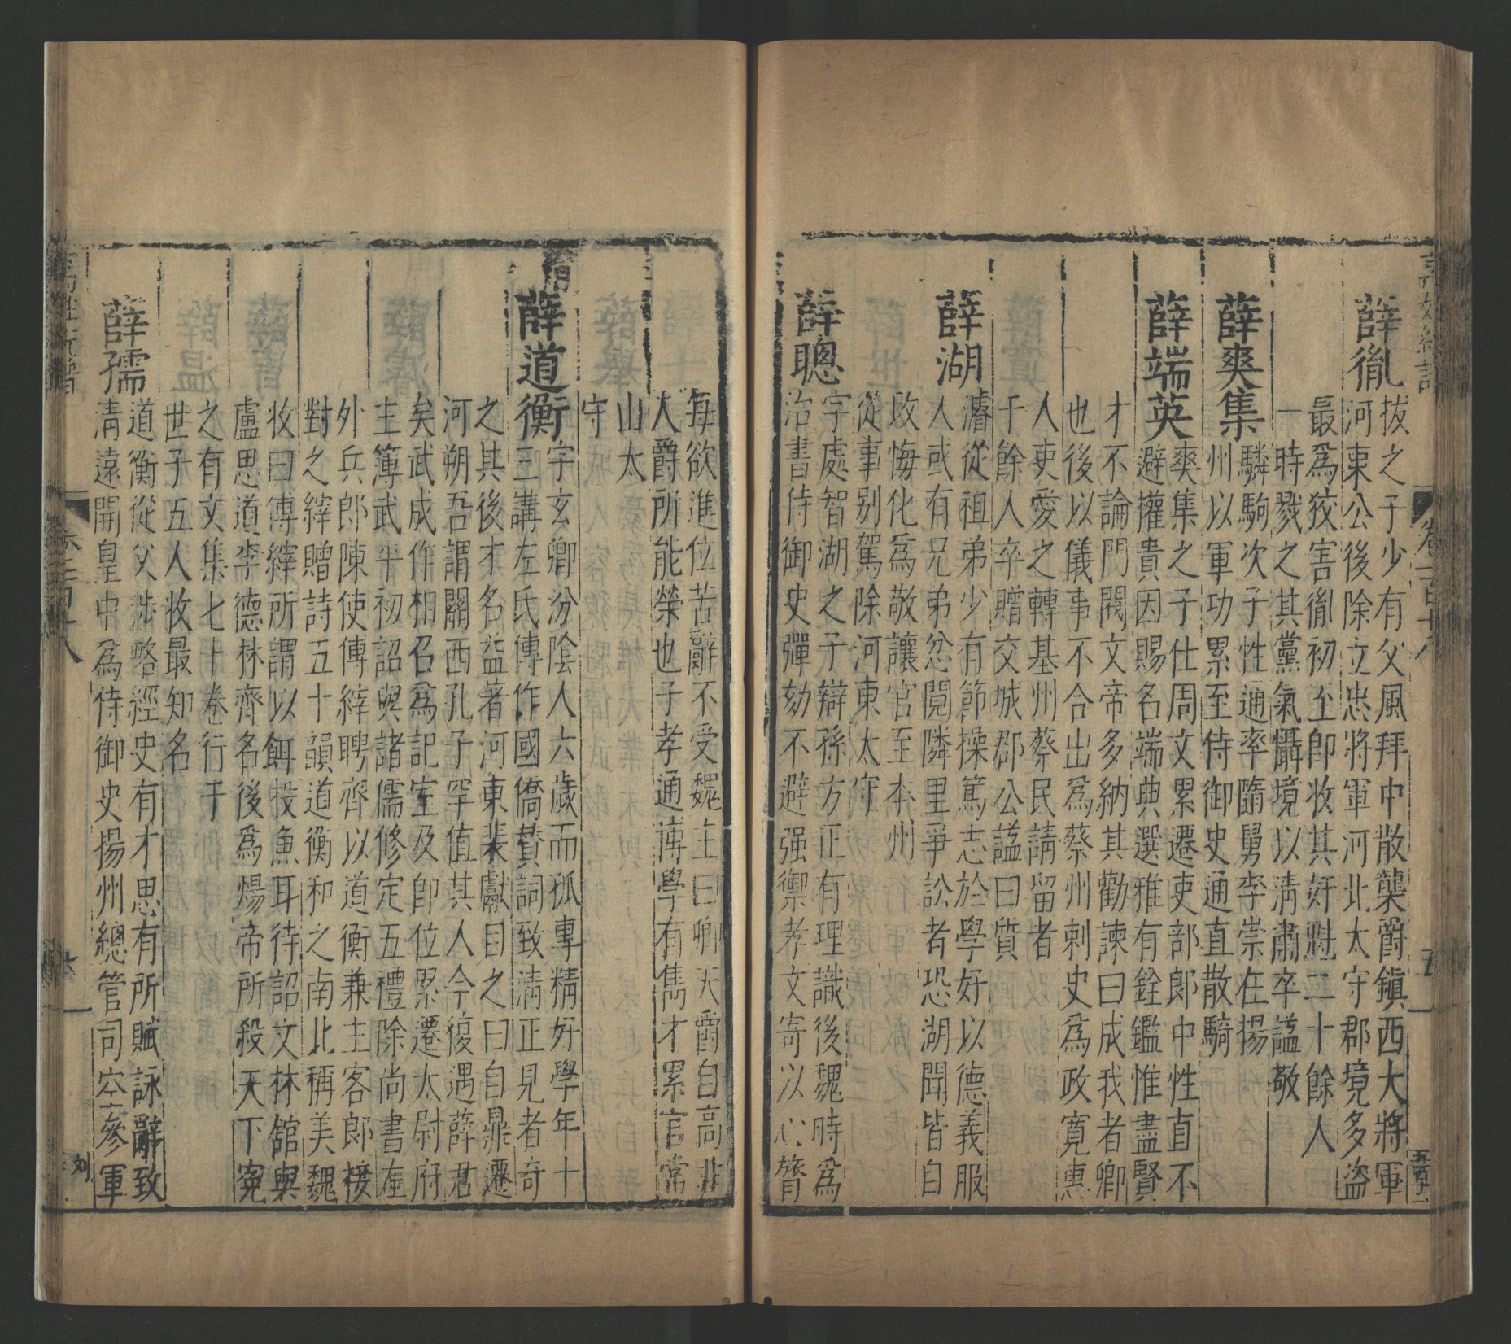 薛胤
拔之子少有父風拜中散襲爵鎮西大將軍
河東公後除立忠將軍河北太守郡境多盜
最爲狡害胤初至即收其奸魁二十餘人
一時戮之其黨氣懾境以清肅卒謚敬
薛爽集
驎駒次子性通率隋舅李崇在揚
州以軍功累至侍御史通直散騎
薛端英
爽集之子仕周文累遷吏部郎中性直不
避權貴因賜名端典選雅有銓鑑惟盡賢
才不論門閥文帝多納其勸諫曰成我者卿
也後以儀事不合出爲蔡州刺史爲政寬惠
人吏愛之轉基州蔡民請留者
千餘人卒贈交城郡公謚曰質
薛湖
濬從祖弟少有節操篤志於學好以德義服
人或有兄弟忿鬩隣里爭訟者恐湖聞皆自
改悔化爲敬讓官至本州
從事别駕除河東太守
薛聰
字處智湖之子辯孫方正有理識後魏時爲
治書侍御史彈劾不避强禦孝文寄以心膂
每欲進位苦辭不受魏主曰卿天爵自高非
人爵所能榮也子孝通博學有雋才累官常
山太
守
隋
薛道衡
字玄卿汾陰人六歲而孤專精好學年十
三講左氏傳作國僑贊詞致清正見者奇
之其後才名益著河東裴讞目之曰自鼎遷
河朔吾謂關西孔子罕值其人今復遇薛君
矣武成作相召爲記室及即位累遷太尉府
主簿武平初詔與諸儒修定五禮除尚書左
外兵郎陳使傅縡聘齊以道衡兼主客郎接
對之縡贈詩五十韻道衡和之南北稱美魏
收曰傅縡所謂以餌投魚耳待詔文林舘與
盧思道李德林齊名後爲煬帝所殺天下寃
之有文集七十卷行于
世子五人收最知名
薛孺
道衡從父㳙略經史有才思有所賦詠辭致
清遠開皇中爲侍御史揚州總管司空參軍